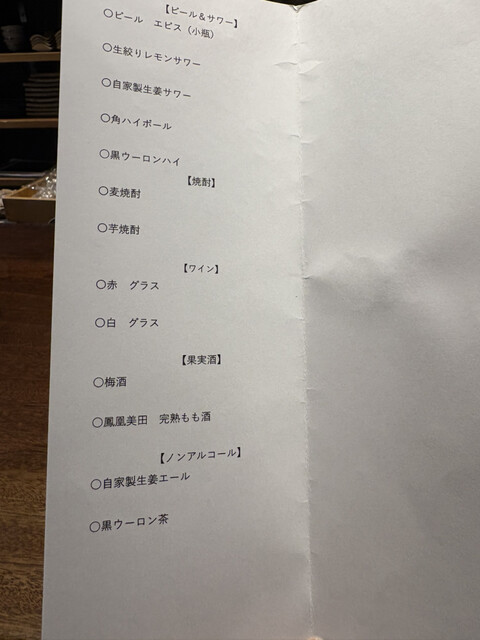 【ビール＆サワー】
〇ビール　エビス（小瓶）
〇生絞りレモンサワー
〇自家製生姜サワー
〇角ハイボール
〇黒ウーロンハイ
【焼酎】
〇麦焼酎
〇芋焼酎
【ワイン】
〇赤　グラス
〇白　グラス
【果実酒】
〇梅酒
〇鳳凰美田　完熟もも酒
【ノンアルコール】
〇自家製生姜エール
〇黒ウーロン茶